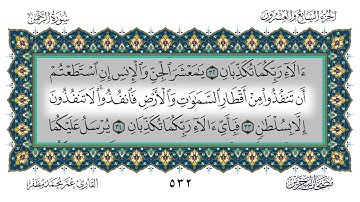 سورة الرحمن
الجزء السابع والعشرون
ءَالَآءِ رَبِّكُمَا تُكَذِّبَانِ ٣٢ يَٰمَعْشَرَ ٱلْجِنِّ وَٱلْإِنسِ إِنِ ٱسْتَطَعْتُمْ
أَن تَنفُذُوا۟ مِنْ أَقْطَارِ ٱلسَّمَٰوَٰتِ وَٱلْأَرْضِ فَٱنفُذُوا۟ لَا تَنفُذُونَ
إِلَّا بِسُلْطَٰنٍ ٣٣ فَبِأَىِّ ءَالَآءِ رَبِّكُمَا تُكَذِّبَانِ ٣٤ يُرْسَلُ عَلَيْكُمَا
٥٣٢